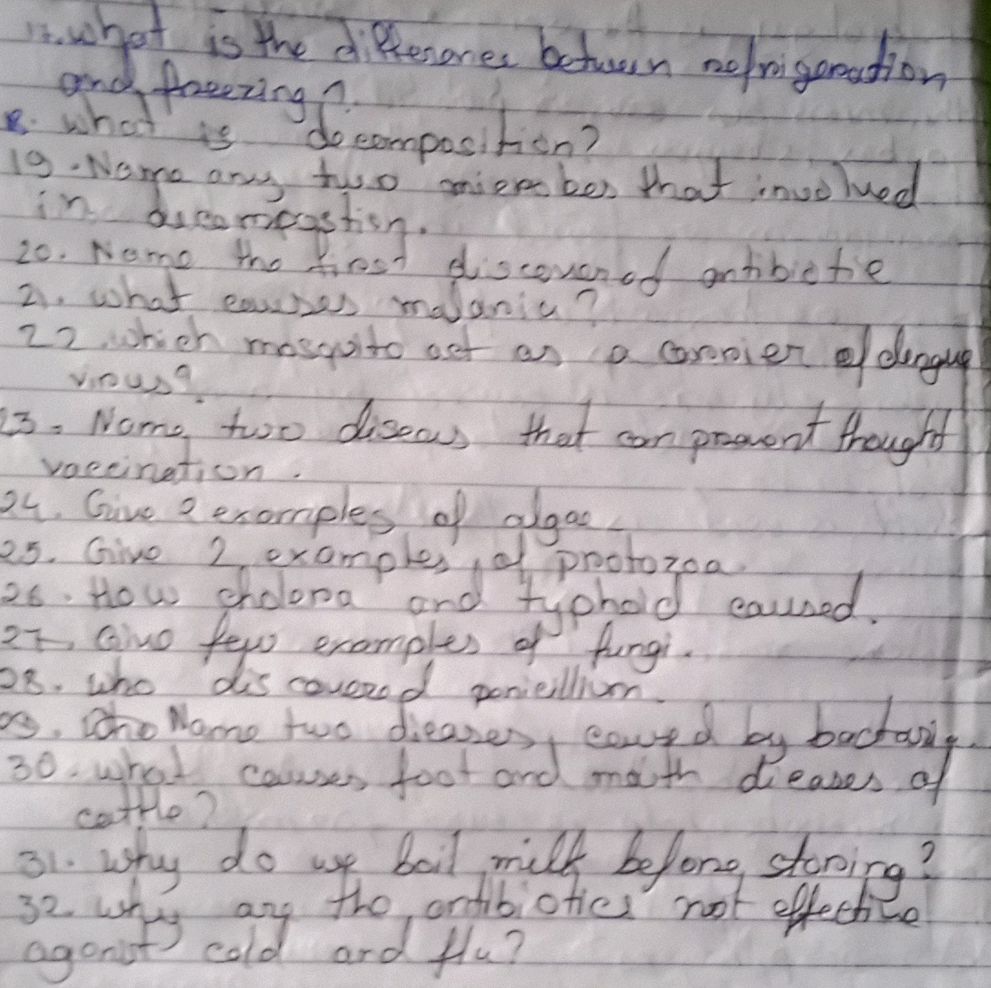 17. what is the differences between refrigeration
and freezing?
8. what is decomposition?
19. Name any two microbes that involved
in decompostion.
20. Name the first discovered antibiotic
21. what causes malaria?
22. which mosquito act as a carrier of dengue
virus?
23. Name two diseas that can prevent thought
vaccination.
24. Give 2 examples of algae.
25. Give 2 examples of protozoa.
26. How cholera and typhoid caused.
27. Give few examples of fungi.
28. who discovered penicillium.
29. Name two dieases caused by bactaria.
30. what causes foot and mouth dieases of
cattle?
31. why do we boil milk before storing?
32. why are the antibiotics not effective
against cold and flu?